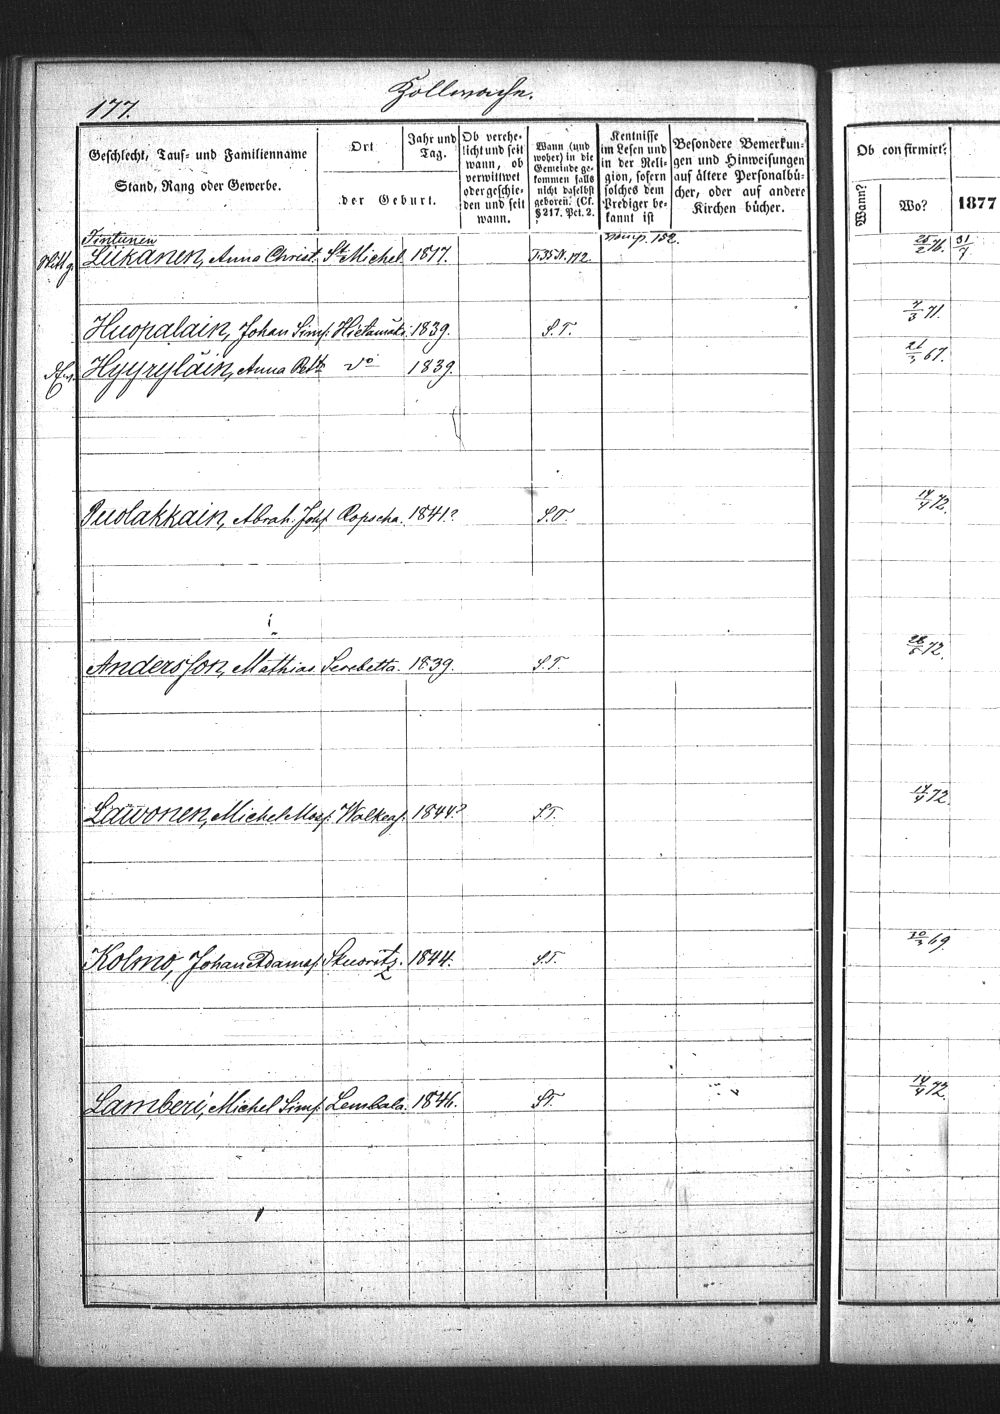 177.
Zollwache.
Geschlecht, Tauf- und Familienname
Stand, Rang oder Gewerbe.
Ort
Jahr und Tag.
der Geburt.
Ob verehe-
licht und seit
wann, ob
verwittwet
oder geschie-
den und seit
wann.
Wann (und
woher) in die
Gemeinde ge-
kommen falls
nicht daselbst
geboren. (Cf.
§ 217. Pct. 2.
Kentnisse
im Lesen und
in der Reli-
gion, sofern
solches dem
Prediger be-
kannt ist
Besondere Bemerkun-
gen und Hinweisungen
auf ältere Personalbü-
cher, oder auf andere
Kirchen bücher.
Ob confirmirt?
Wann?
Wo?
1877
Tintunen
Liikanen, Anna Christ. St. Michel. 1817. 152. 25/2 76. 31/7
Huopalain, Johan Simf. Hietamäki. 1839. S.T. 7/3 71.
Hyyryläin, Anna do 1839. 21/3 67.
Puolakkain, Abrah. Josf. Ropscha. 1841? S.T. 14/4 72.
Andersson, Mathias Serebetta. 1839. S.T. 28/5 72.
Lawonen, Michel Mosf. Walkeas. 1844? S.T. 14/4 72.
Kolmo, Johan Adamsf. Skworitz. 1844. S.T. 10/3 69.
Lamberi, Michel Simf. Lembala. 1846. S.T. 14/4 72.